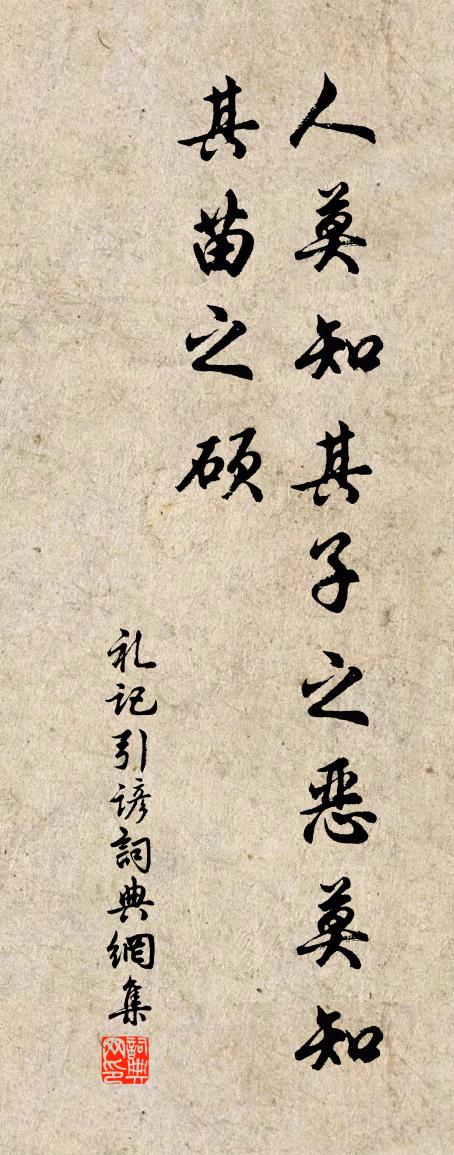 人莫知其子之恶莫知
其苗之硕
礼记引谚詞典網集
詞典
网印